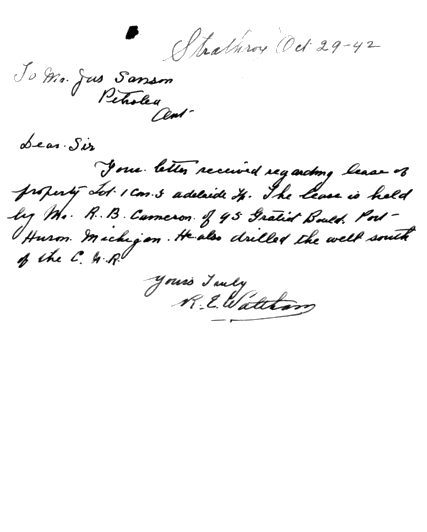 Strathroy Oct 29-42
To Mr. Jas Sanson
Petrolea
Ont
Dear Sir
Your letter received regarding lease of
property Lot. 1 Con. 5 adelaide Tp. The lease is held
by Mr. R. B. Cameron. of 95 Gratiot Bould. Port-
Huron. Michigan. He also drilled the well south
of the C. N. R.
Yours Truly
R. E.